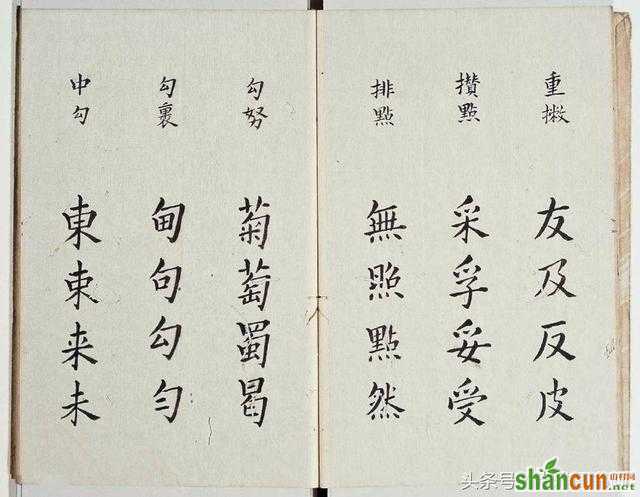 重撇
友及反皮
攢點
采孚妥受
排點
無照點然
勾努
菊萄蜀曷
勾裹
甸句勾勻
中勾
東来未
头条号
shancun
.net